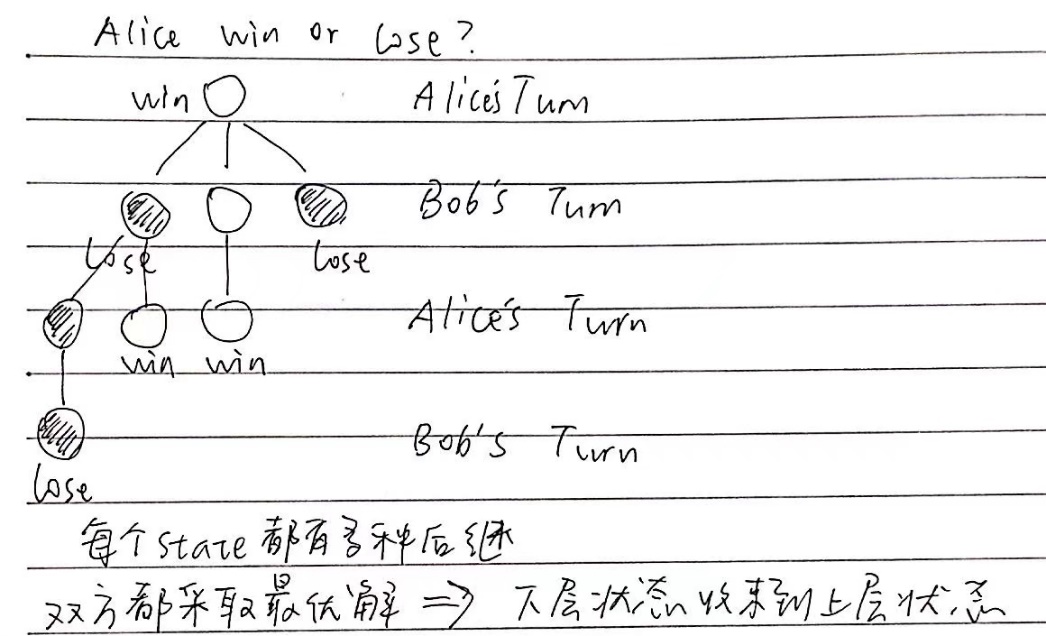 Alice win or lose?
win Alice's Turn
Bob's Turn
lose lose
Alice's Turn
win win
Bob's Turn
lose
每个state都有多种后继
双方都采取最优解 => 下层状态收束到上层状态